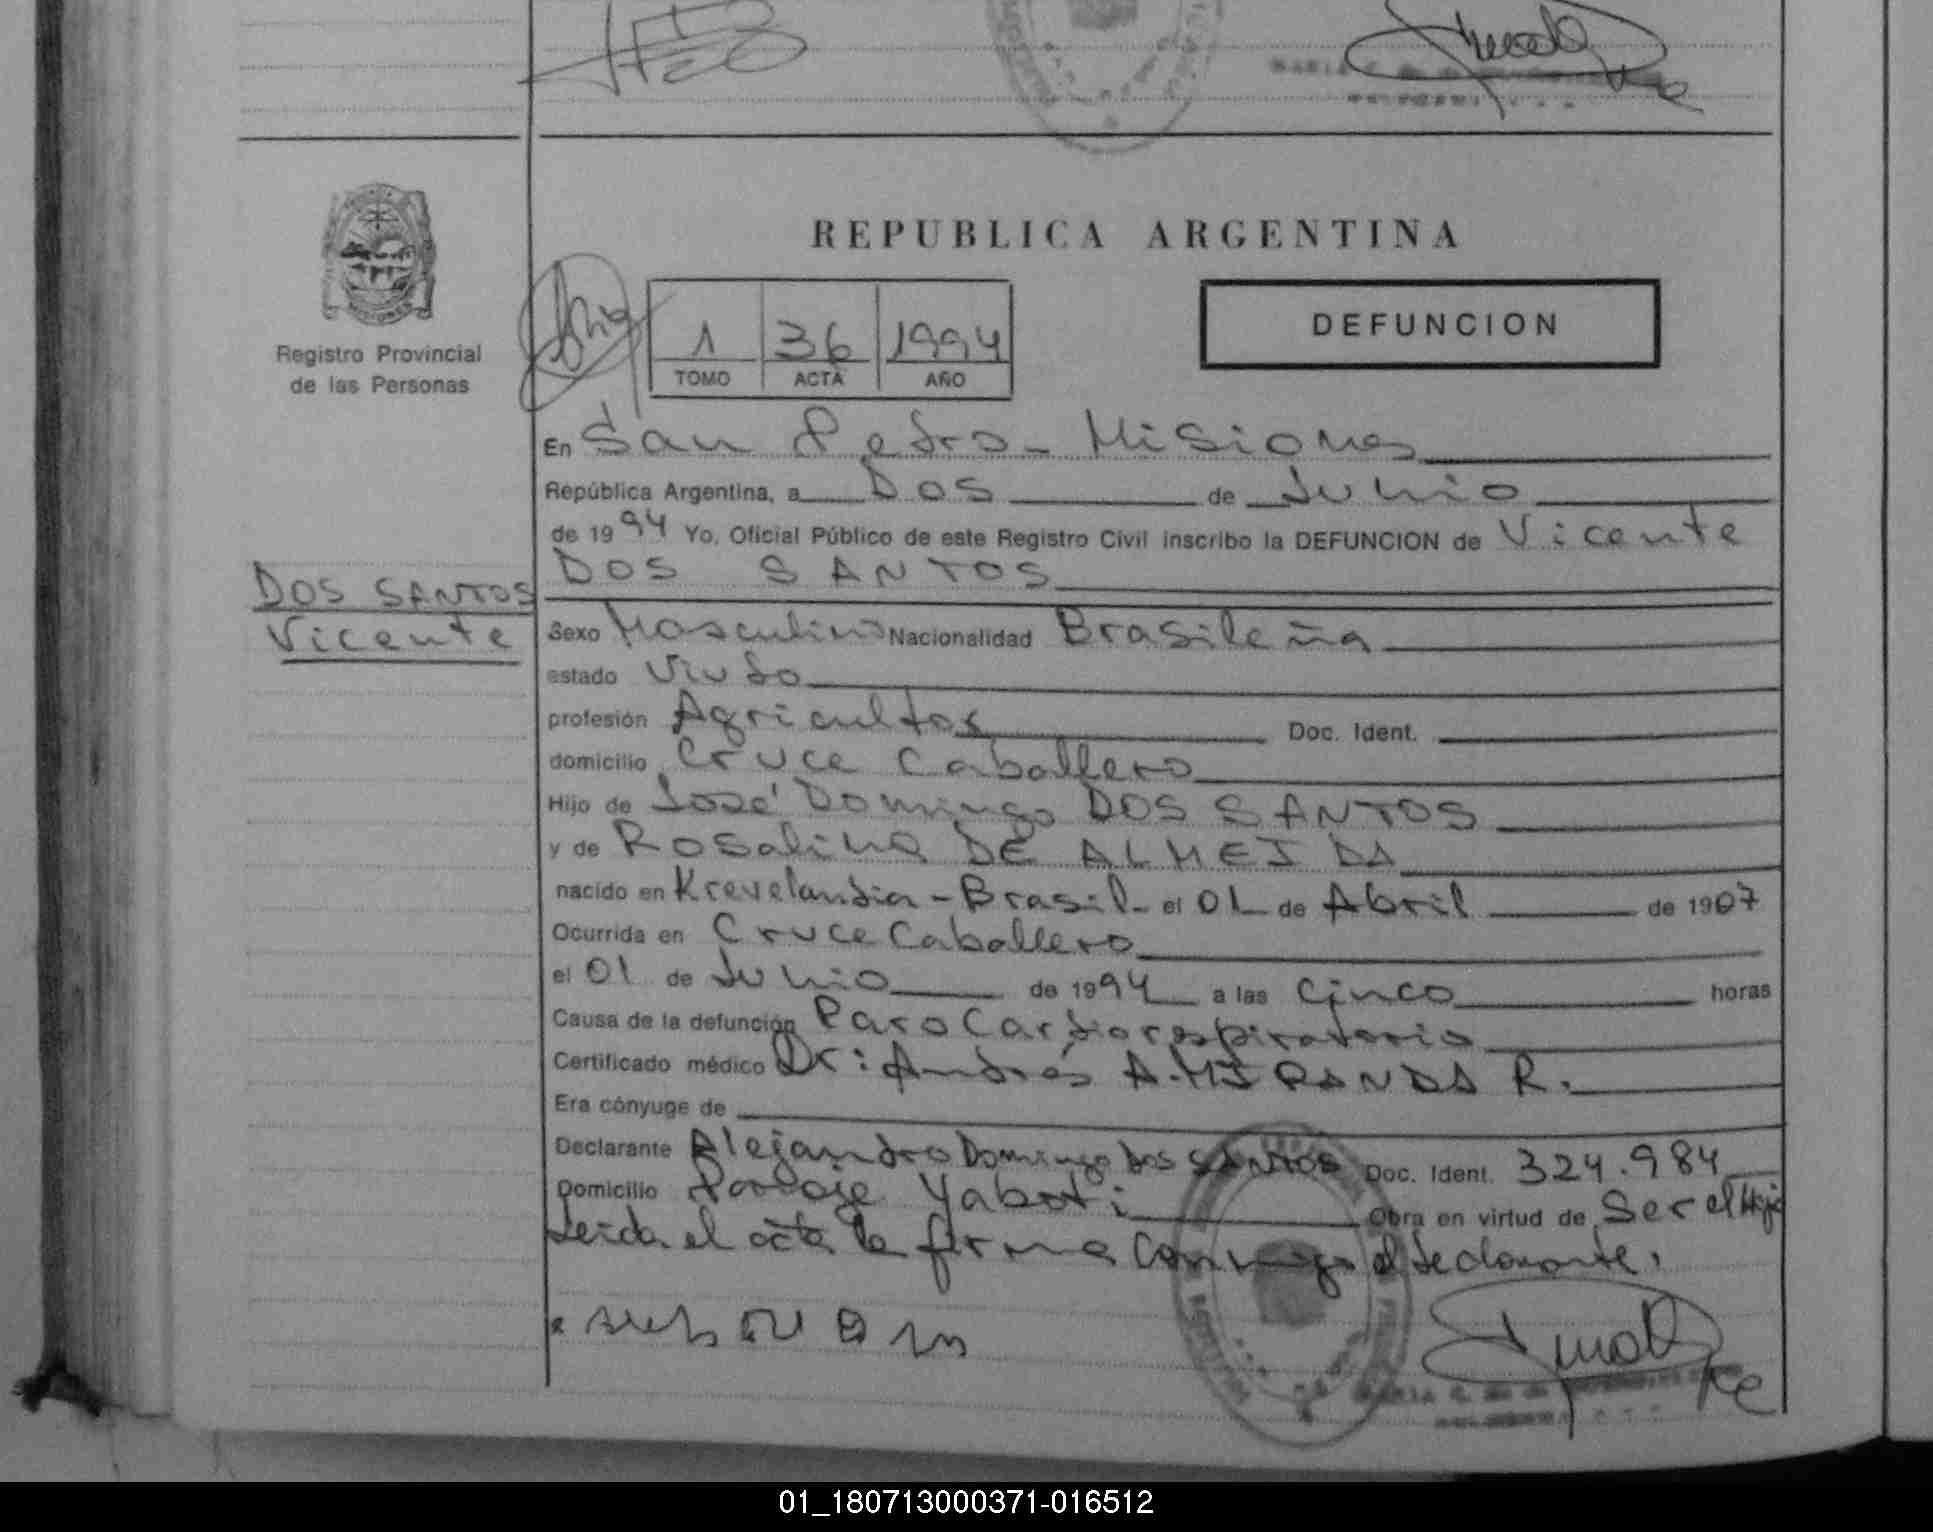 REPUBLICA ARGENTINA
Registro Provincial
de las Personas
1 36 1994
TOMO ACTA AÑO
DEFUNCION
En San Pedro - Misiones
República Argentina, a Dos de Junio
de 1994 Yo, Oficial Público de este Registro Civil inscribo la DEFUNCION de Vicente
DOS SANTOS
DOS SANTOS
Vicente
Sexo Masculino Nacionalidad Brasileña
estado Viudo
profesión Agricultor Doc. Ident.
domicilio Cruce Caballero
Hijo de José Domingo DOS SANTOS
y de Rosalina DE ALMEIDA
nacido en Krevelandia - Brasil - el 01 de Abril de 1907
Ocurrida en Cruce Caballero
el 01 de Junio de 1994 a las Cinco horas
Causa de la defunción Paro Cardiorespiratorio
Certificado médico Dr: Andrés A. MIRANDA R.
Era cónyuge de
Declarante Alejandro Domingo Dos SANTOS Doc. Ident. 324.984
Domicilio Paraje Yaboti Obra en virtud de Ser el Hijo
Leida el acta la firma conmigo el declarante.
01_180713000371-016512